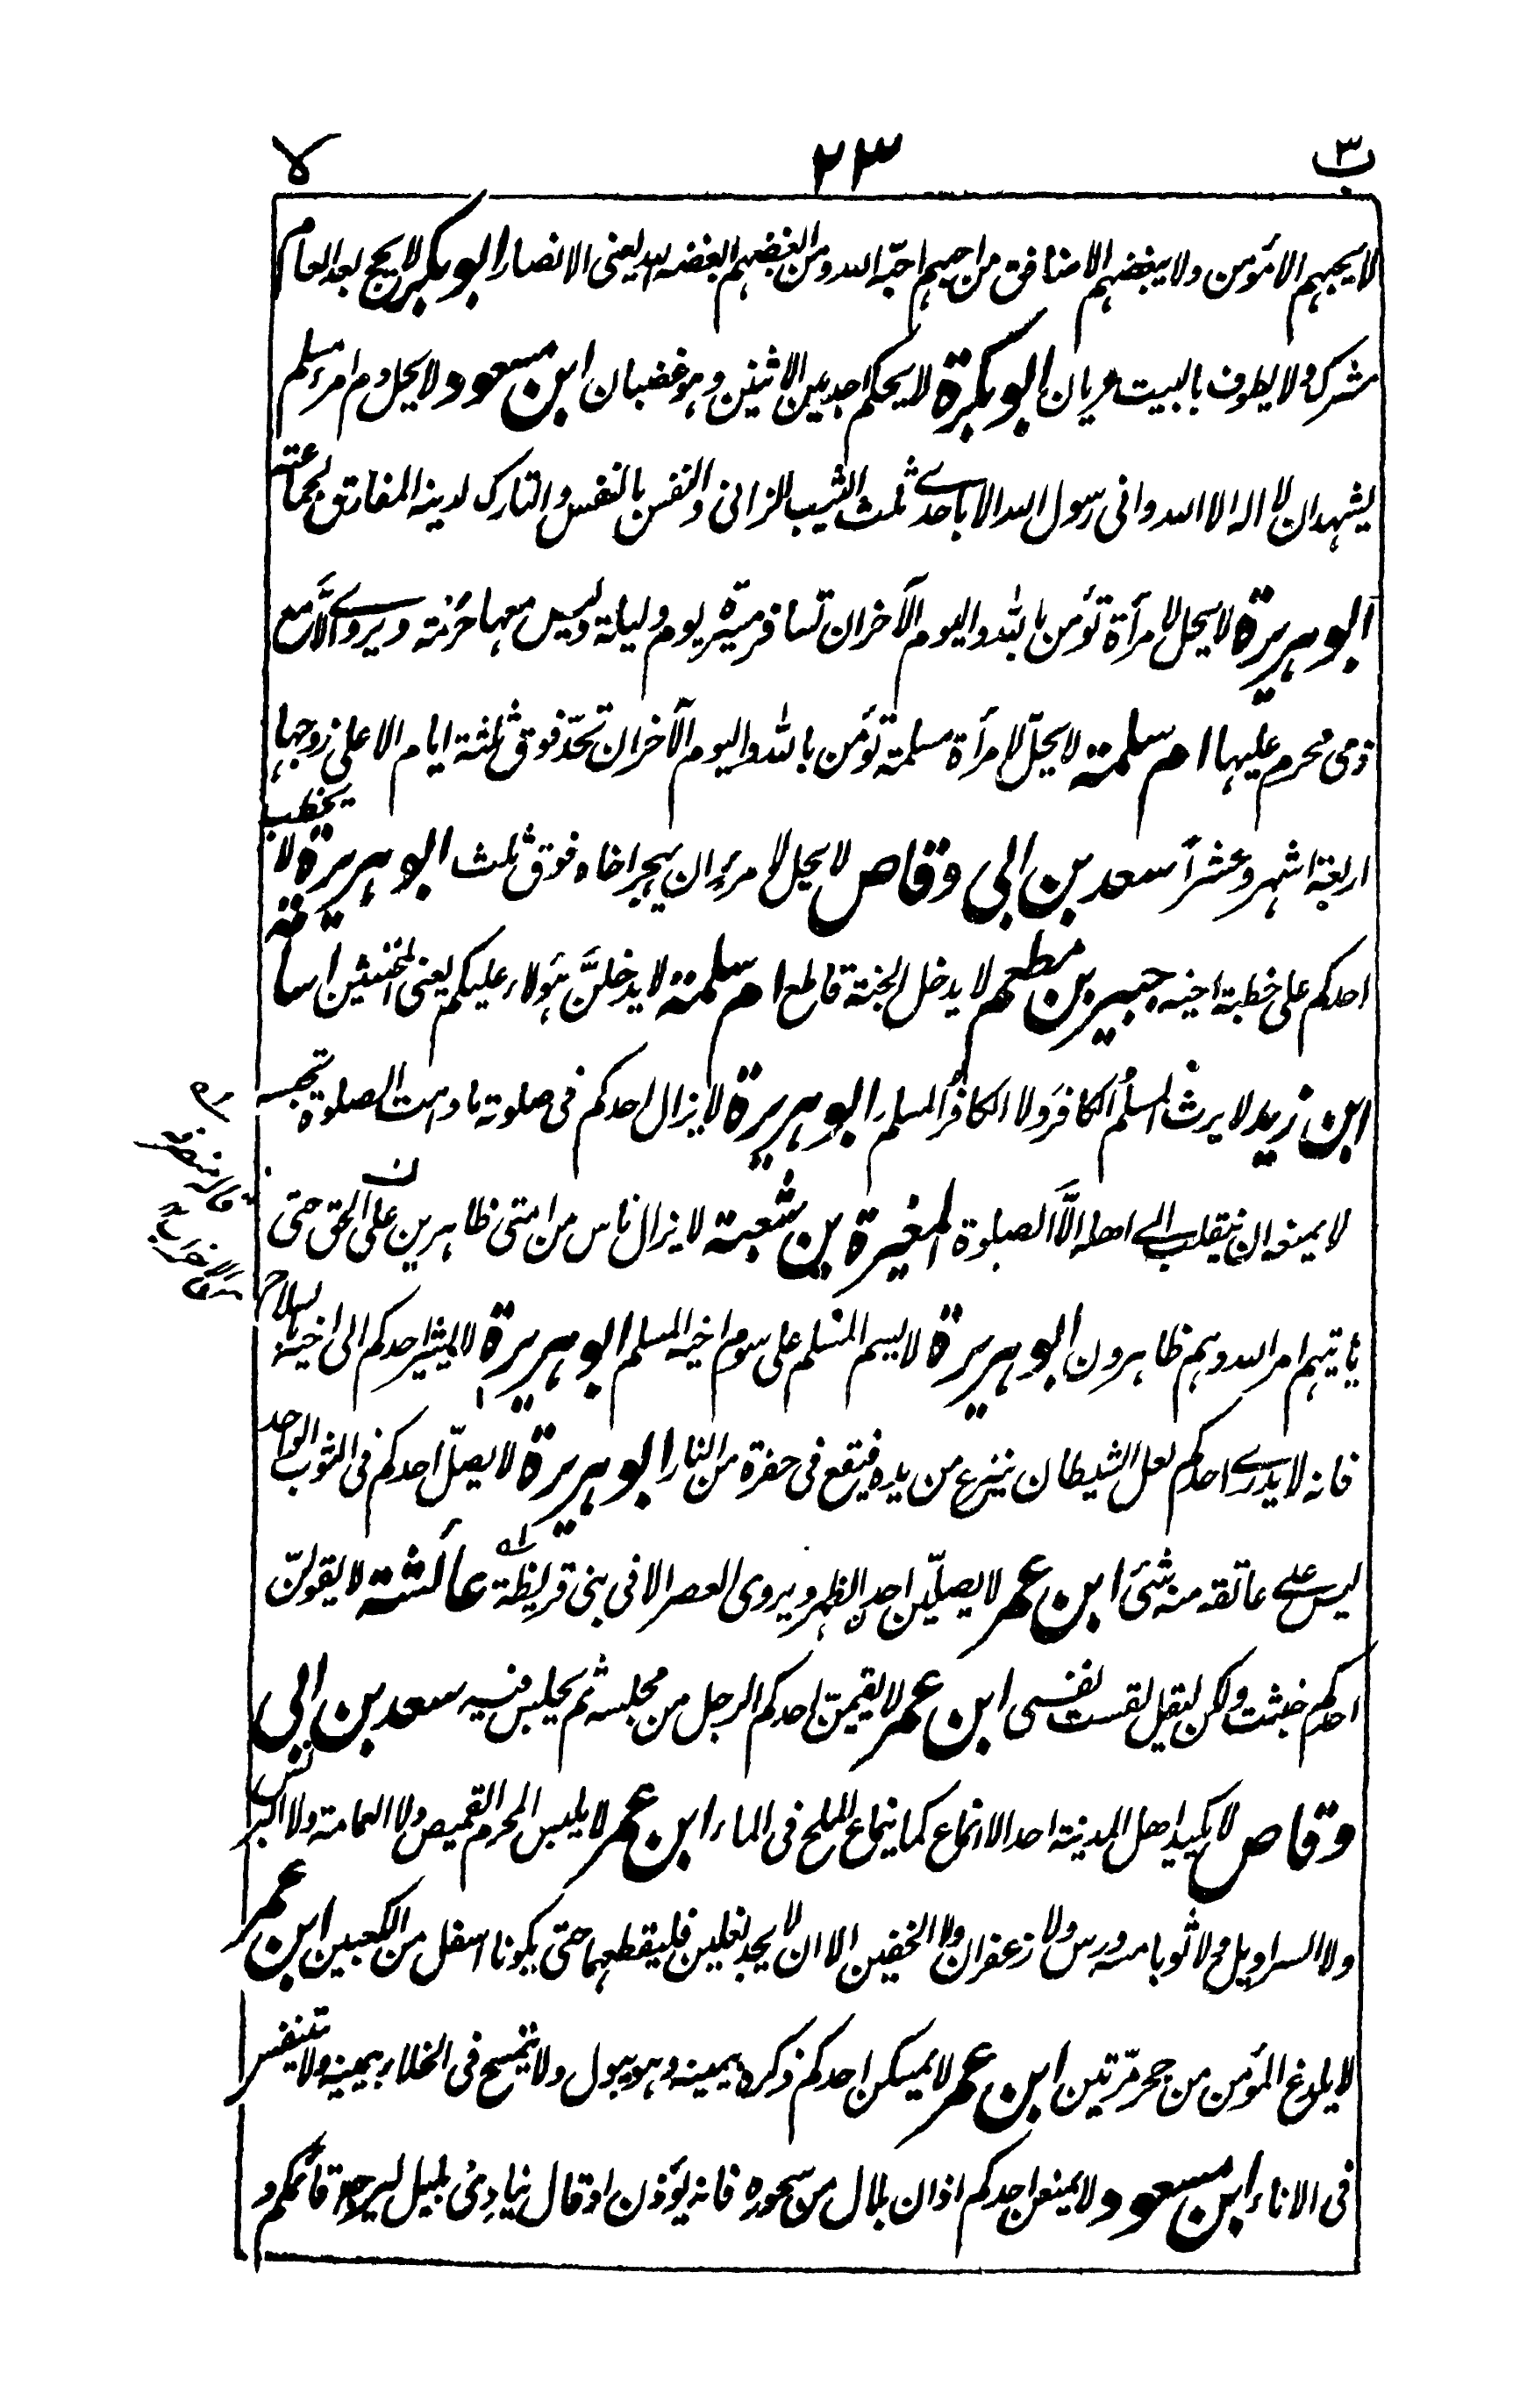 ب ٣ ٢٣ لا
لا يحبهم الا مؤمن ولا يبغضهم الا منافق من احبهم احبّه الله ومن ابغضهم ابغضه الله يعنى الانصار ابو بكر لا يحج بعد العام
مشرك ولا يطوف بالبيت عريان ابو بكرة لا يحكم احد بين الاثنين وهو غضبان ابن مسعود لا يحل دم امرء مسلم
يشهد ان لا اله الا الله وانى رسول الله الا باحدے ثلث الثيب الزانى والنفس بالنفس والتارك لدينه المفارق لجماعته
ابو هريرة لا يحل لامرأة تؤمن بالله واليوم الآخر ان تسافر مسيرة يوم وليلة وليس معها حرمة ويروے الّا مع
ذى محرم عليها ام سلمة لا يحلّ لامرأة مسلمة تؤمن بالله واليوم الآخر ان تحدّ فوق ثلثة ايام الا على زوجها
اربعة اشهر وعشراً سعد بن ابى وقاص لا يحل لامرءٍ ان يهجر اخاه فوق ثلث ابو هريرة لا يخطب
احدكم على خطبة اخيه جبير بن مطعم لا يدخل الجنة قاطع ام سلمة لا يدخلنَّ هؤلاء عليكم يعنى المخنثين اسامة
ابن زيد لا يرث المسلمُ الكافرَ ولا الكافرُ المسلم ابو هريرة لا يزال احدكم فى صلوة ما دامت الصلوة تحبسه
لا يمنعه ان ينقلب الے اهله الّا الصلوة المغيرة بن شعبة لا يزال ناس من امتى ظاهرين على الحق حتى
ياتيهم امر الله وهم ظاهرون ابو هريرة لا يسم المسلم على سوم اخيه المسلم ابو هريرة لا يشير احدكم الى اخيه بالسلاح
فانه لا يدرے احدكم لعل الشيطان ينزع من يده فيقع فى حفرة من النار ابو هريرة لا يصلّ احدكم فى الثوب الواحد
ليس علے عاتقه منه شئ ابن عمر لا يصلّين احد الظهر ويروى العصر الا فى بنى قريظة عائشة لا يقولنّ
احدكم خبثت نفسى ولكن ليقل لقست نفسى ابن عمر لا يقيمنّ احدكم الرجل من مجلسه ثم يجلس فيه سعد بن ابى
وقاص لا يكيد اهل المدينة احد الا انماع كما ينماع الملح فى الماء ابن عمر لا يلبس المحرم القميص ولا العمامة ولا البرنس
ولا السراويل ولا ثوبا مسه ورس ولا زعفران ولا الخفين الا ان لا يجد نعلين فليقطعهما حتى يكونا اسفل من الكعبين ابن عمر
لا يلدغ المؤمن من جحر مرّتين ابن عمر لا يمسكن احدكم ذكره بيمينه وهو يبول ولا يتمسح فى الخلاء بيمينه ولا يتنفس
فى الاناء ابن مسعود لا يمنعن احدكم اذان بلال من سحوره فانه يؤذن او قال ينادى بليل ليرجع قائمكم و